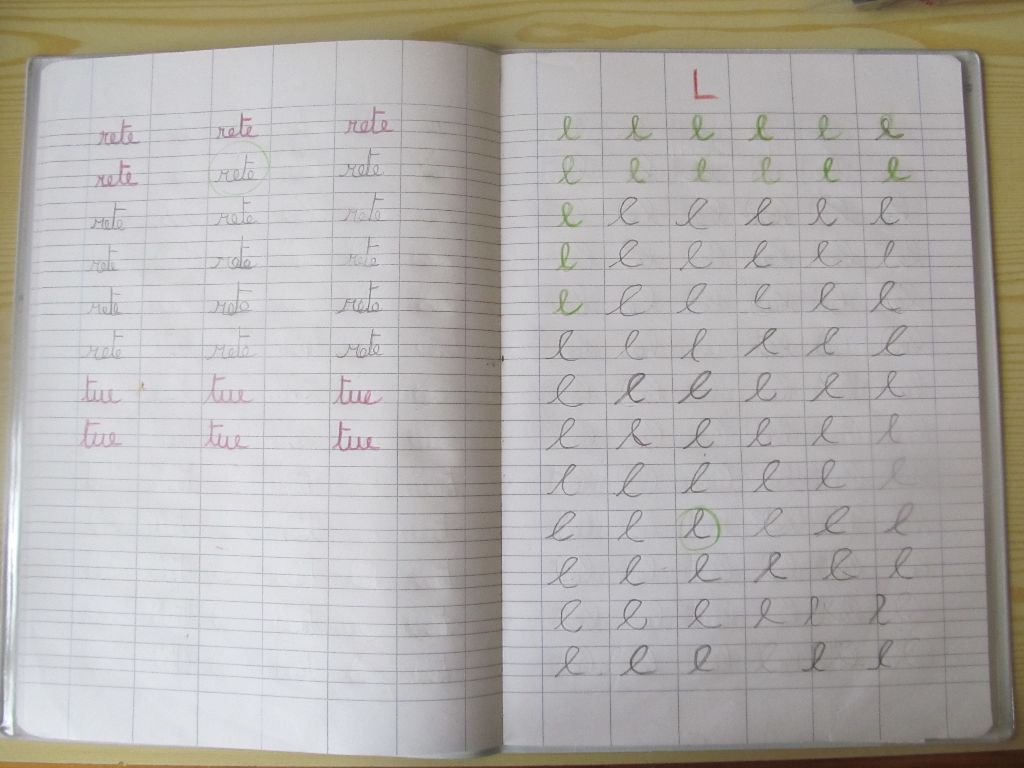 rete rete rete
rete rete rete
rete rete rete
rete rete rete
rete rete rete
rete rete rete
tue tue tue
tue tue tue
L
l l l l l l
l l l l l l
l l l l l l
l l l l l l
l l l l l l
l l l l l l
l l l l l l
l l l l l l
l l l l l l
l l l l l l
l l l l l l
l l l l l l
l l l l l l